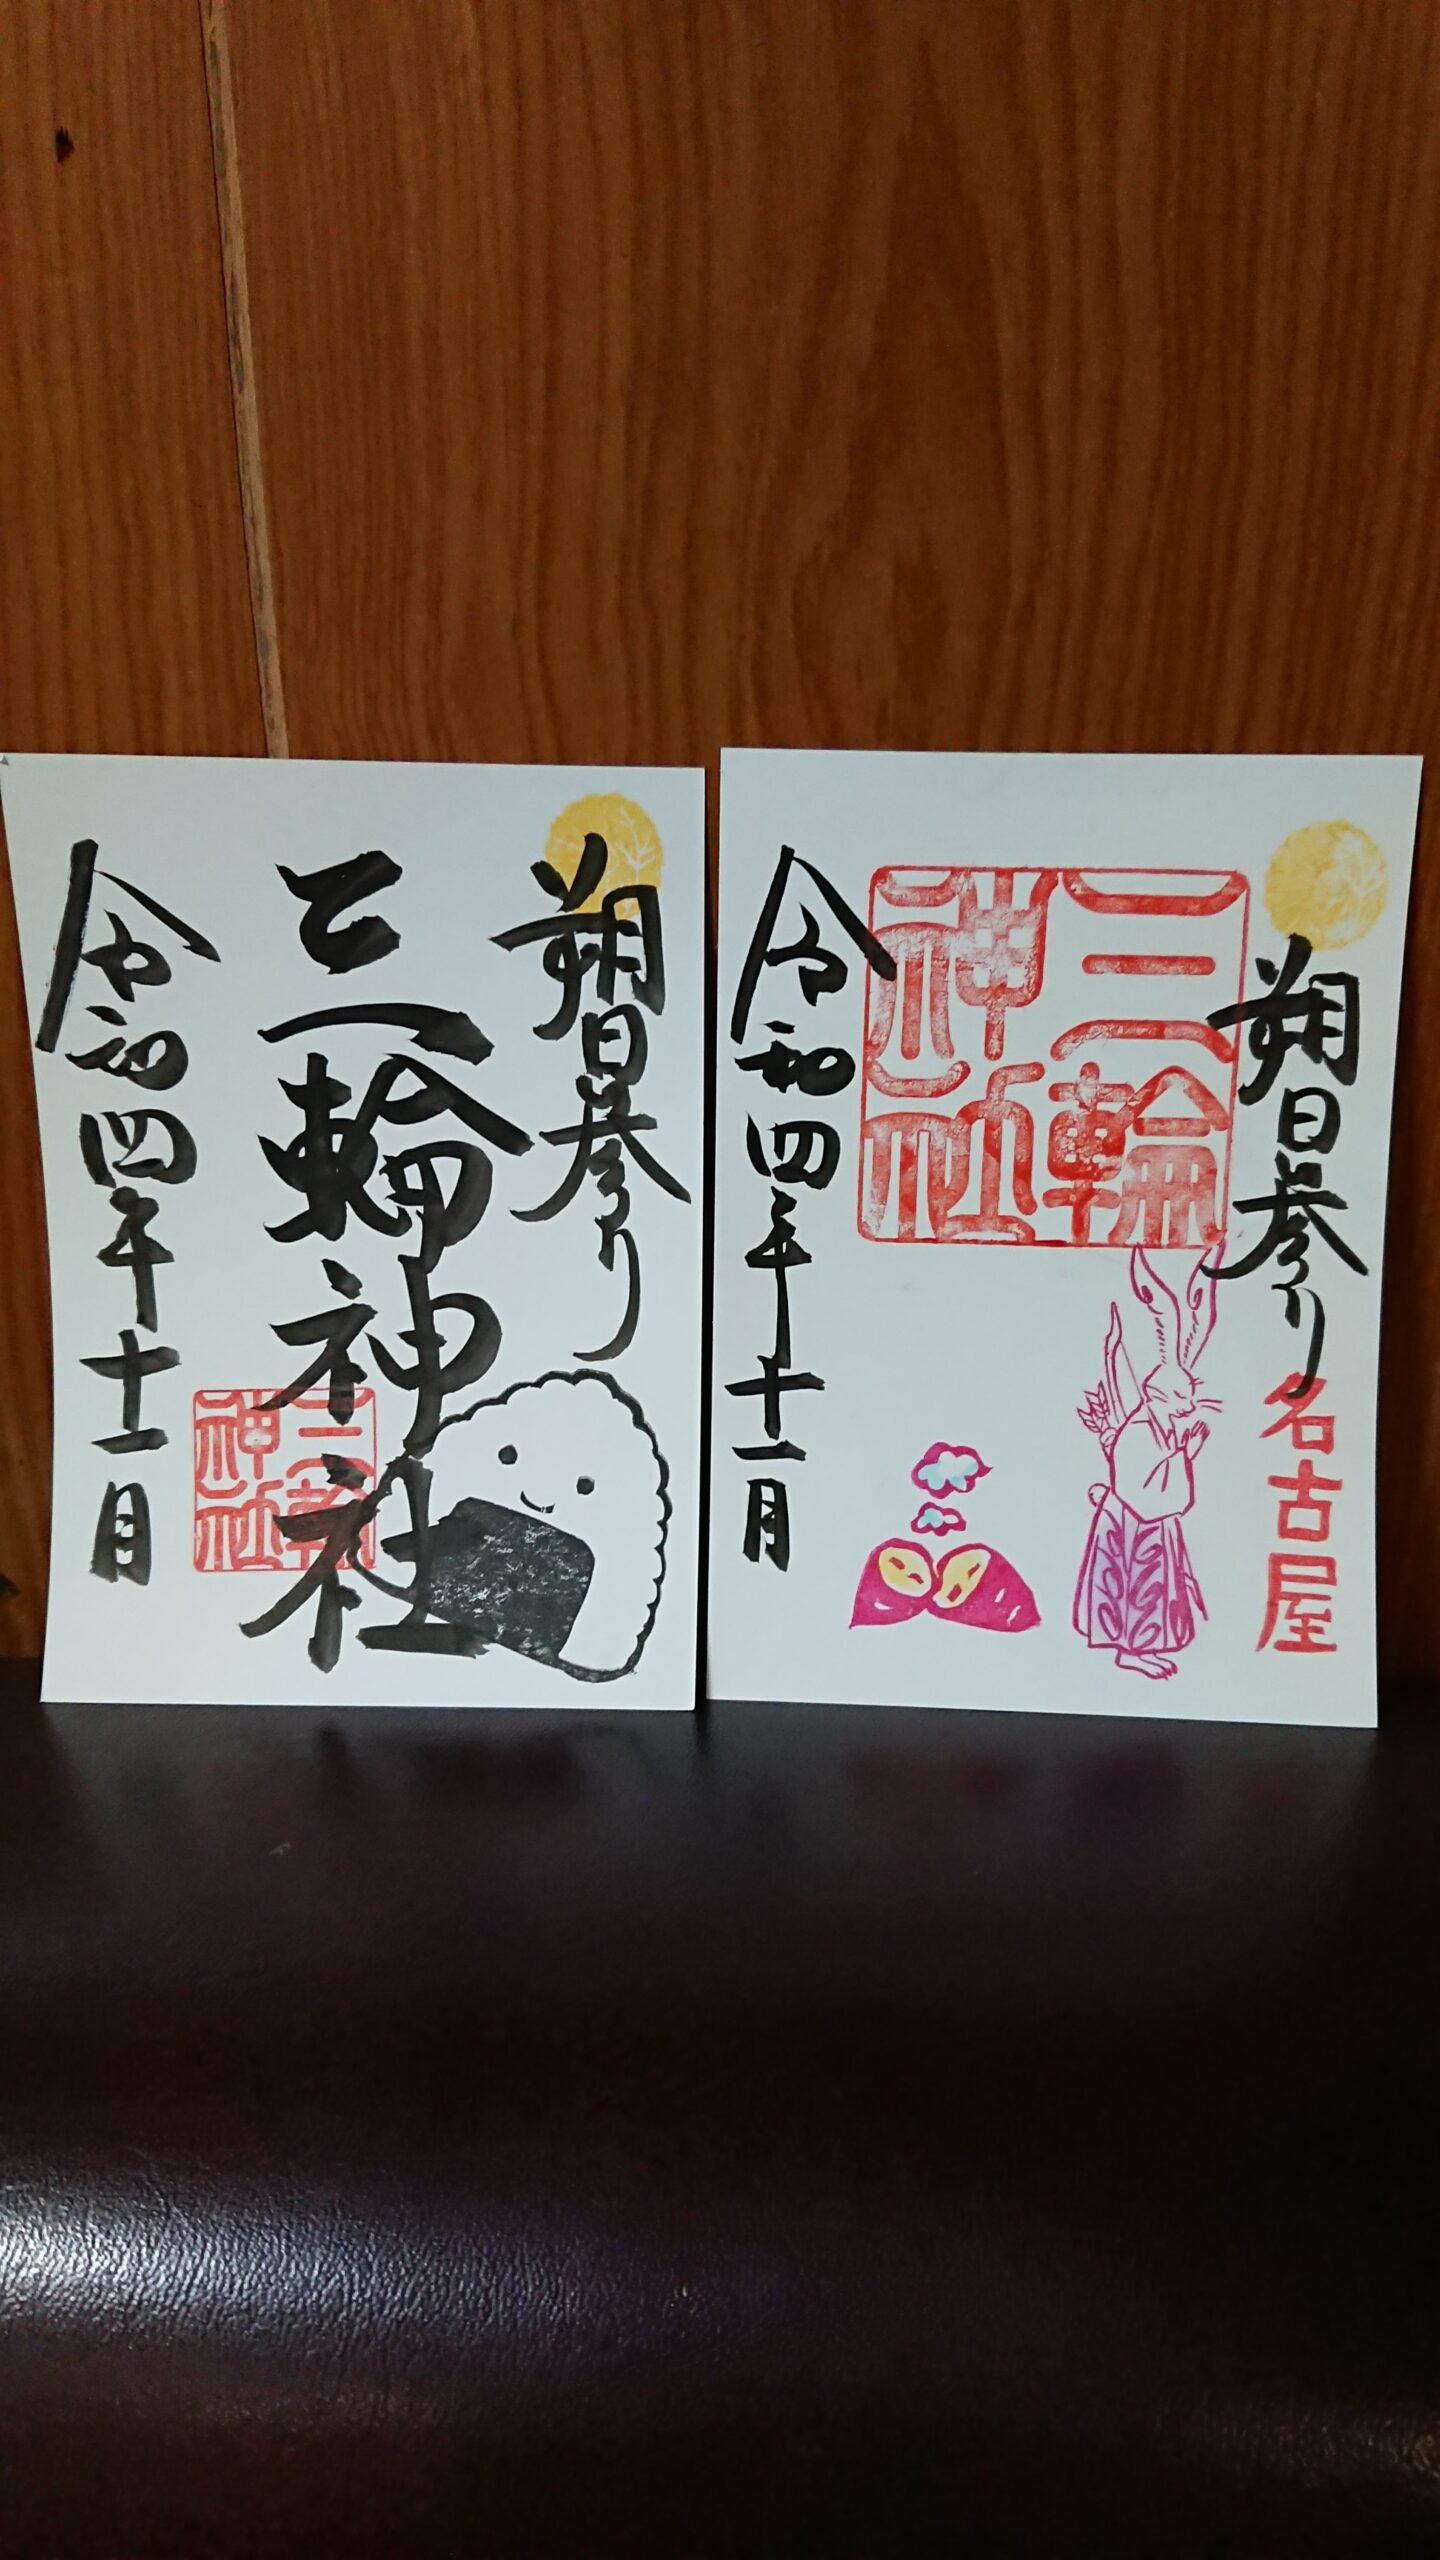 朔日参り
三輪神社
三輪神社
令和四年十一月
朔日参り
名古屋
三輪神社
令和四年十一月